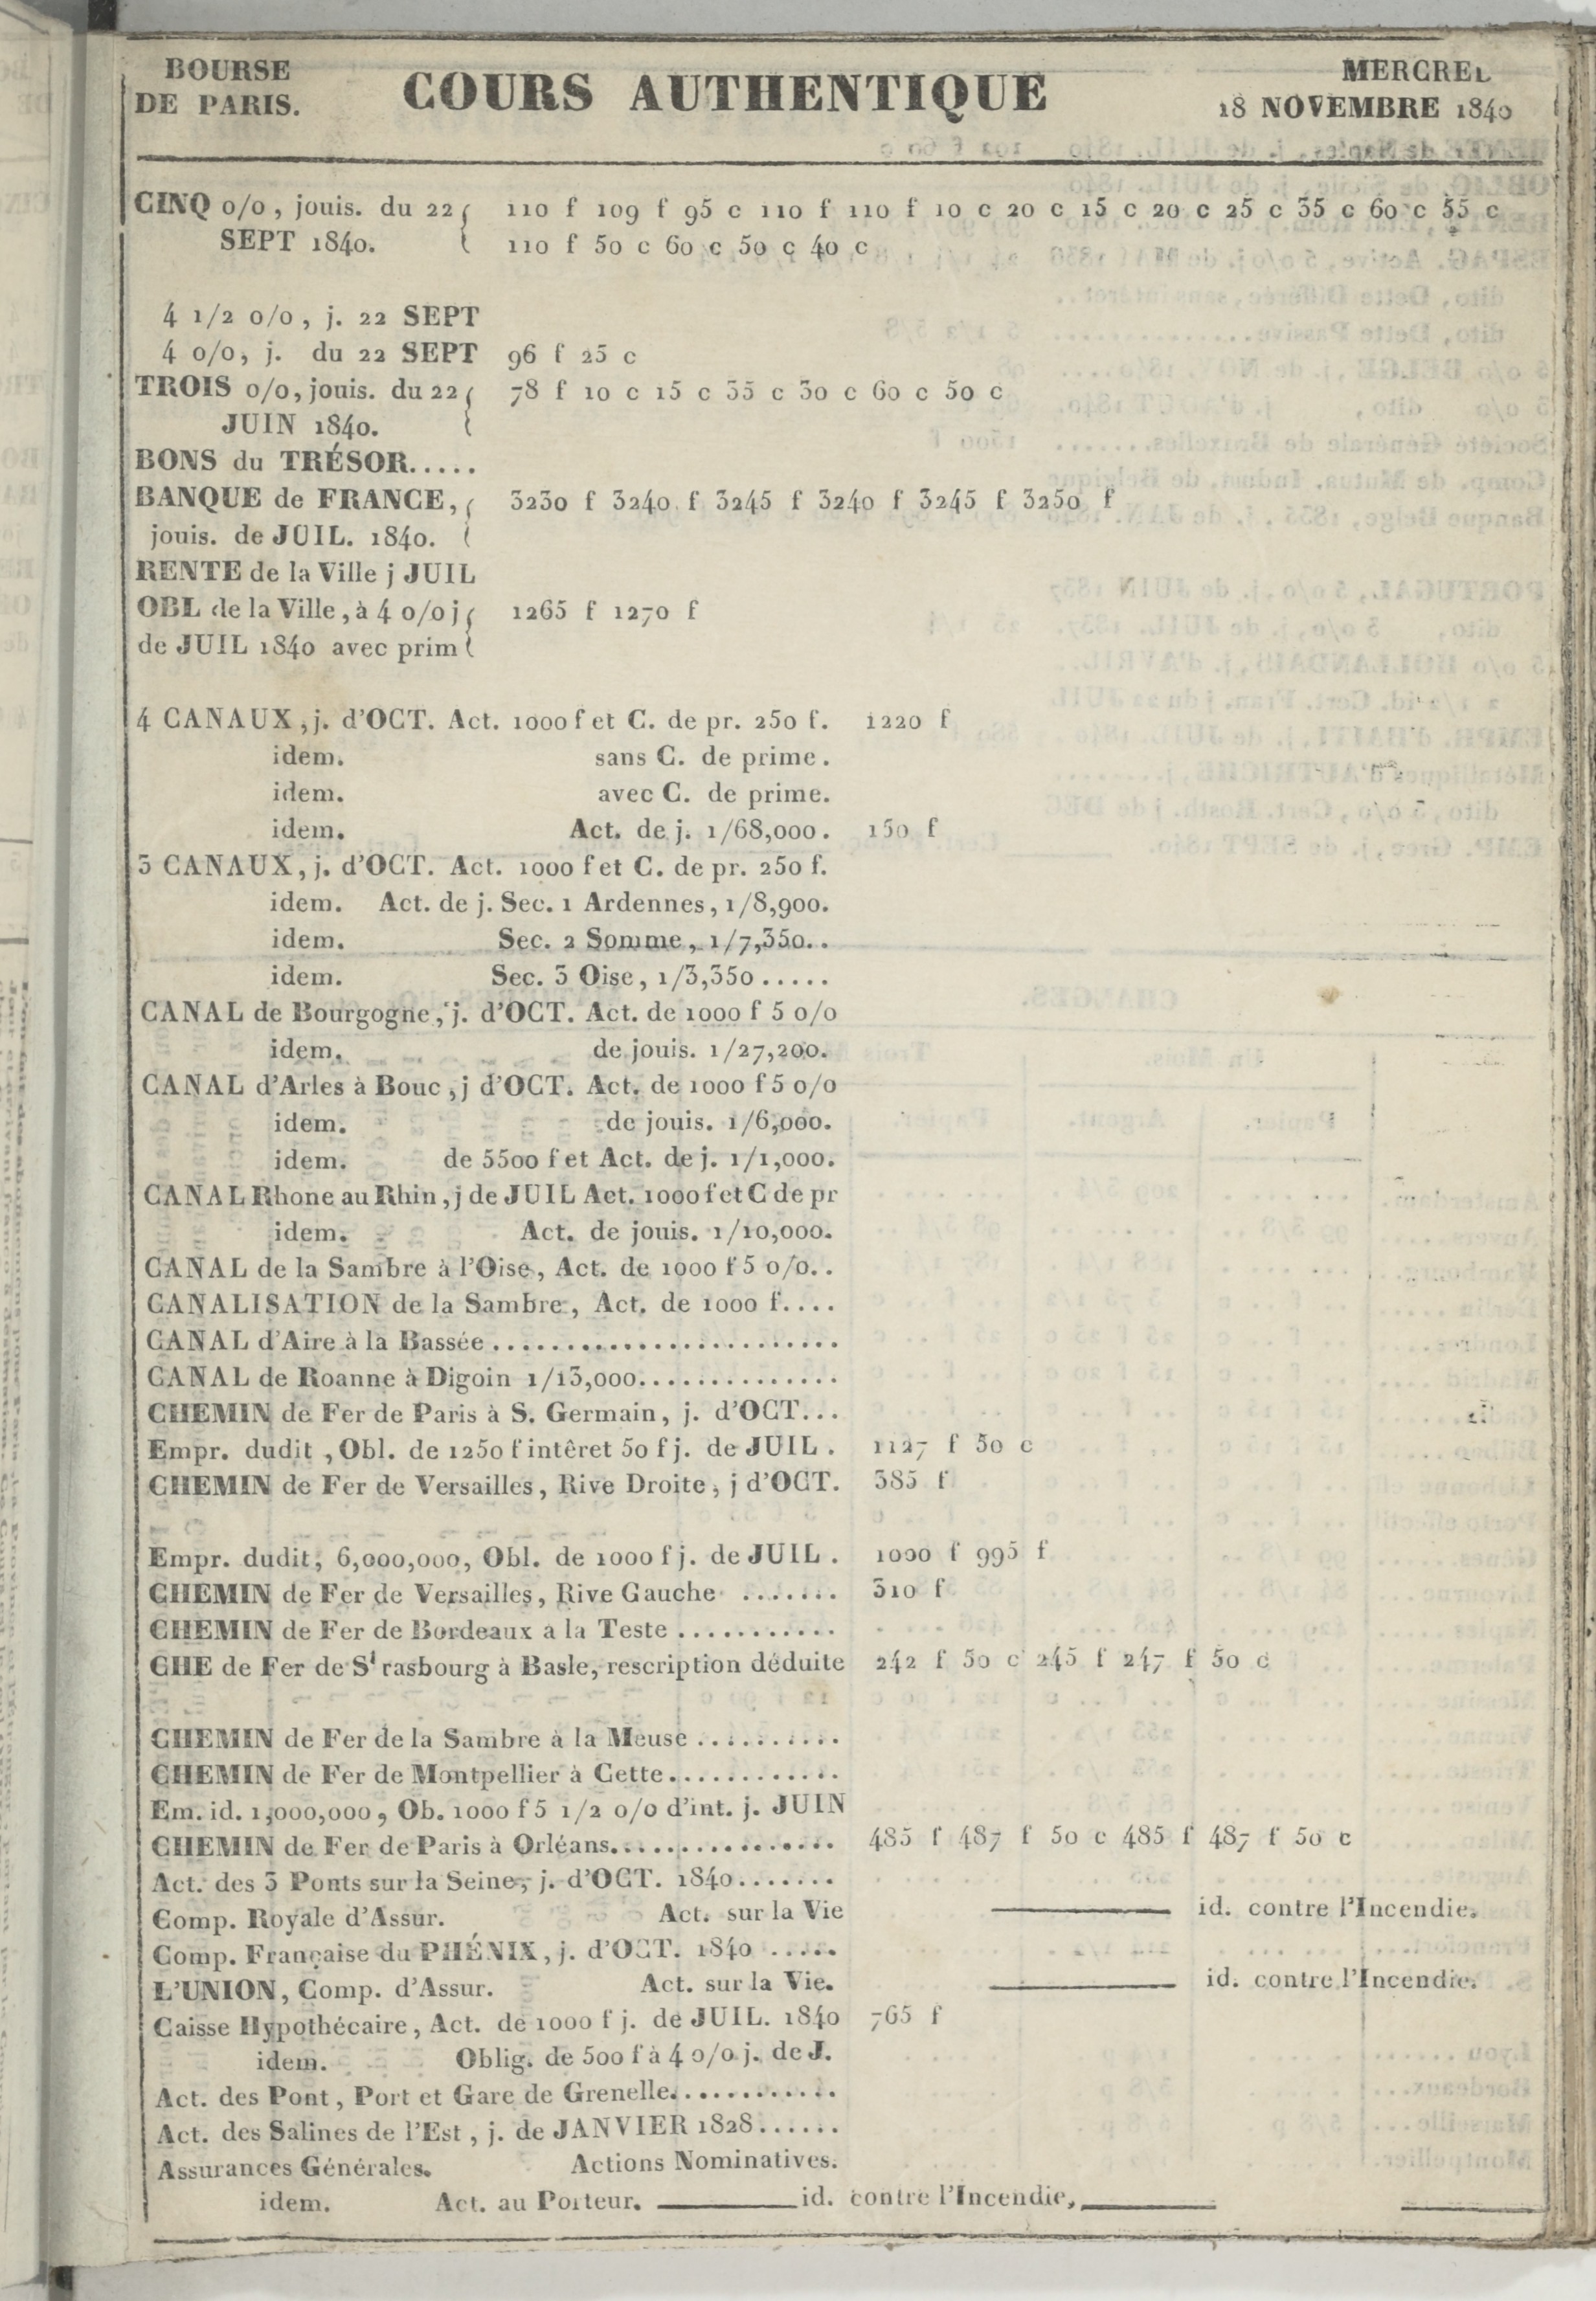 BOURSE
DE PARIS.
COURS AUTHENTIQUE
MERCREL
18 NOVEMBRE 1840
CINQ o/o, jouis. du 22 110 f 109 f 95 c 110 f 110 f 10 c 20 c 15 c 20 c 25 c 35 c 60 c 55 c
SEPT 1840. 110 f 50 c 60 c 50 c 40 c
4 1/2 o/o, j. 22 SEPT
4 o/o, j. du 22 SEPT 96 f 25 c
TROIS o/o, jouis. du 22 78 f 10 c 15 c 35 c 30 c 60 c 50 c
JUIN 1840.
BONS du TRÉSOR.....
BANQUE de FRANCE, 3230 f 3240 f 3245 f 3240 f 3245 f 3250 f
jouis. de JUIL. 1840.
RENTE de la Ville j JUIL
OBL de la Ville, à 4 o/o j 1265 f 1270 f
de JUIL 1840 avec prim
4 CANAUX, j. d'OCT. Act. 1000 f et C. de pr. 250 f. 1220 f
idem. sans C. de prime.
idem. avec C. de prime.
idem. Act. de j. 1/68,000. 150 f
3 CANAUX, j. d'OCT. Act. 1000 f et C. de pr. 250 f.
idem. Act. de j. Sec. 1 Ardennes, 1/8,900.
idem. Sec. 2 Somme, 1/7,350..
idem. Sec. 3 Oise, 1/3,350.....
CANAL de Bourgogne, j. d'OCT. Act. de 1000 f 5 o/o
idem. de jouis. 1/27,200.
CANAL d'Arles à Bouc, j d'OCT. Act. de 1000 f 5 o/o
idem. de jouis. 1/6,000.
idem. de 5500 f et Act. de j. 1/1,000.
CANAL Rhone au Rhin, j de JUIL Act. 1000 f et C de pr
idem. Act. de jouis. 1/10,000.
CANAL de la Sambre à l'Oise, Act. de 1000 f 5 o/o..
CANALISATION de la Sambre, Act. de 1000 f....
CANAL d'Aire à la Bassée........................
CANAL de Roanne à Digoin 1/13,000..............
CHEMIN de Fer de Paris à S. Germain, j. d'OCT...
Empr. dudit, Obl. de 1250 f intêret 50 f j. de JUIL. 1127 f 50 c
CHEMIN de Fer de Versailles, Rive Droite, j d'OCT. 385 f
Empr. dudit, 6,000,000, Obl. de 1000 f j. de JUIL. 1000 f 995 f
CHEMIN de Fer de Versailles, Rive Gauche ....... 310 f
CHEMIN de Fer de Bordeaux a la Teste ...........
CHE de Fer de St rasbourg à Basle, rescription déduite 242 f 50 c 245 f 247 f 50 c
CHEMIN de Fer de la Sambre à la Meuse ..........
CHEMIN de Fer de Montpellier à Cette............
Em. id. 1,000,000, Ob. 1000 f 5 1/2 o/o d'int. j. JUIN
CHEMIN de Fer de Paris à Orléans................ 485 f 487 f 50 c 485 f 487 f 50 c
Act. des 3 Ponts sur la Seine, j. d'OCT. 1840.......
Comp. Royale d'Assur. Act. sur la Vie id. contre l'Incendie.
Comp. Française du PHÉNIX, j. d'OCT. 1840 .....
L'UNION, Comp. d'Assur. Act. sur la Vie. id. contre l'Incendie.
Caisse Hypothécaire, Act. de 1000 f j. de JUIL. 1840 765 f
idem. Oblig. de 500 f à 4 o/o j. de J.
Act. des Pont, Port et Gare de Grenelle............
Act. des Salines de l'Est, j. de JANVIER 1828......
Assurances Générales. Actions Nominatives.
idem. Act. au Porteur. id. contre l'Incendie,